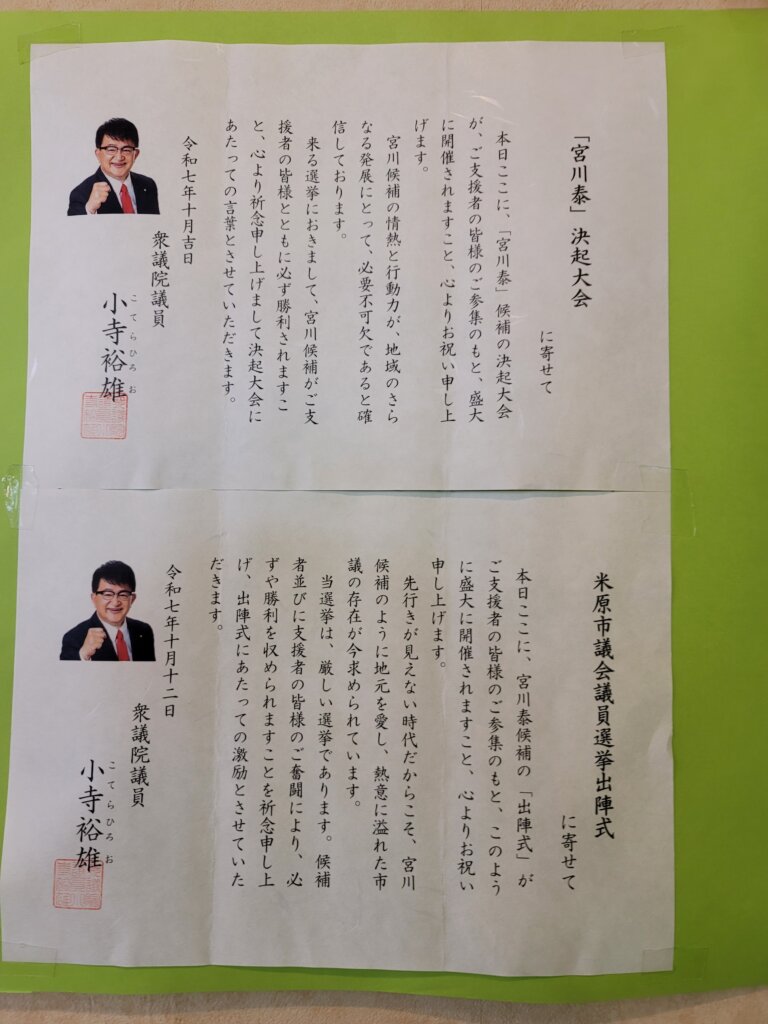 「宮川泰」決起大会
に寄せて
本日ここに、「宮川泰」候補の決起大会
が、ご支援者の皆様のご参集のもと、盛大
に開催されますこと、心よりお祝い申し上
げます。
宮川候補の情熱と行動力が、地域のさら
なる発展にとって、必要不可欠であると確
信しております。
来る選挙におきまして、宮川候補がご支
援者の皆様とともに必ず勝利されますこ
と、心より祈念申し上げまして決起大会に
あたっての言葉とさせていただきます。
令和七年十月吉日
衆議院議員
こてらひろお
小寺裕雄
米原市議会議員選挙出陣式
に寄せて
本日ここに、宮川泰候補の「出陣式」が
ご支援者の皆様のご参集のもと、このよう
に盛大に開催されますこと、心よりお祝い
申し上げます。
先行きが見えない時代だからこそ、宮川
候補のように地元を愛し、熱意に溢れた市
議の存在が今求められています。
当選挙は、厳しい選挙であります。候補
者並びに支援者の皆様のご奮闘により、必
ずや勝利を収められますことを祈念申し上
げ、出陣式にあたっての激励とさせていた
だきます。
令和七年十月十二日
衆議院議員
こてらひろお
小寺裕雄